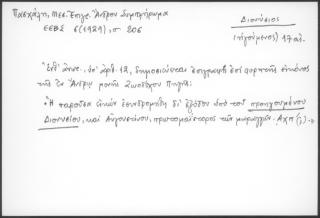 Πασχάλη, Μεσ. Επιγρ. Άνδρου Συμπλήρωμα
ΕΕΒΣ 6 (1929), σ 206
Διονύσιος
(ηγούμενος) 17 αι.
Ἐνθ' ἀνωτ. ὑπ' ἀριθ. 12, δημοσιεύεται ἐπιγραφή ἐπί φορητῆς εἰκόνος
τῆς ἐν Ἄνδρῳ μονῆς Ζωοδόχου Πηγῆς:
"Ἡ παροῦσα εἰκών ἐσυνδρομήθη δι' ἐξόδου ἀπό τοῦ προηγουμένου
Διονυσίου, καί Αὐγουστίνου, πρωτομαΐστορος τῶν μαραγγῶν. ΑΧΠ (;)